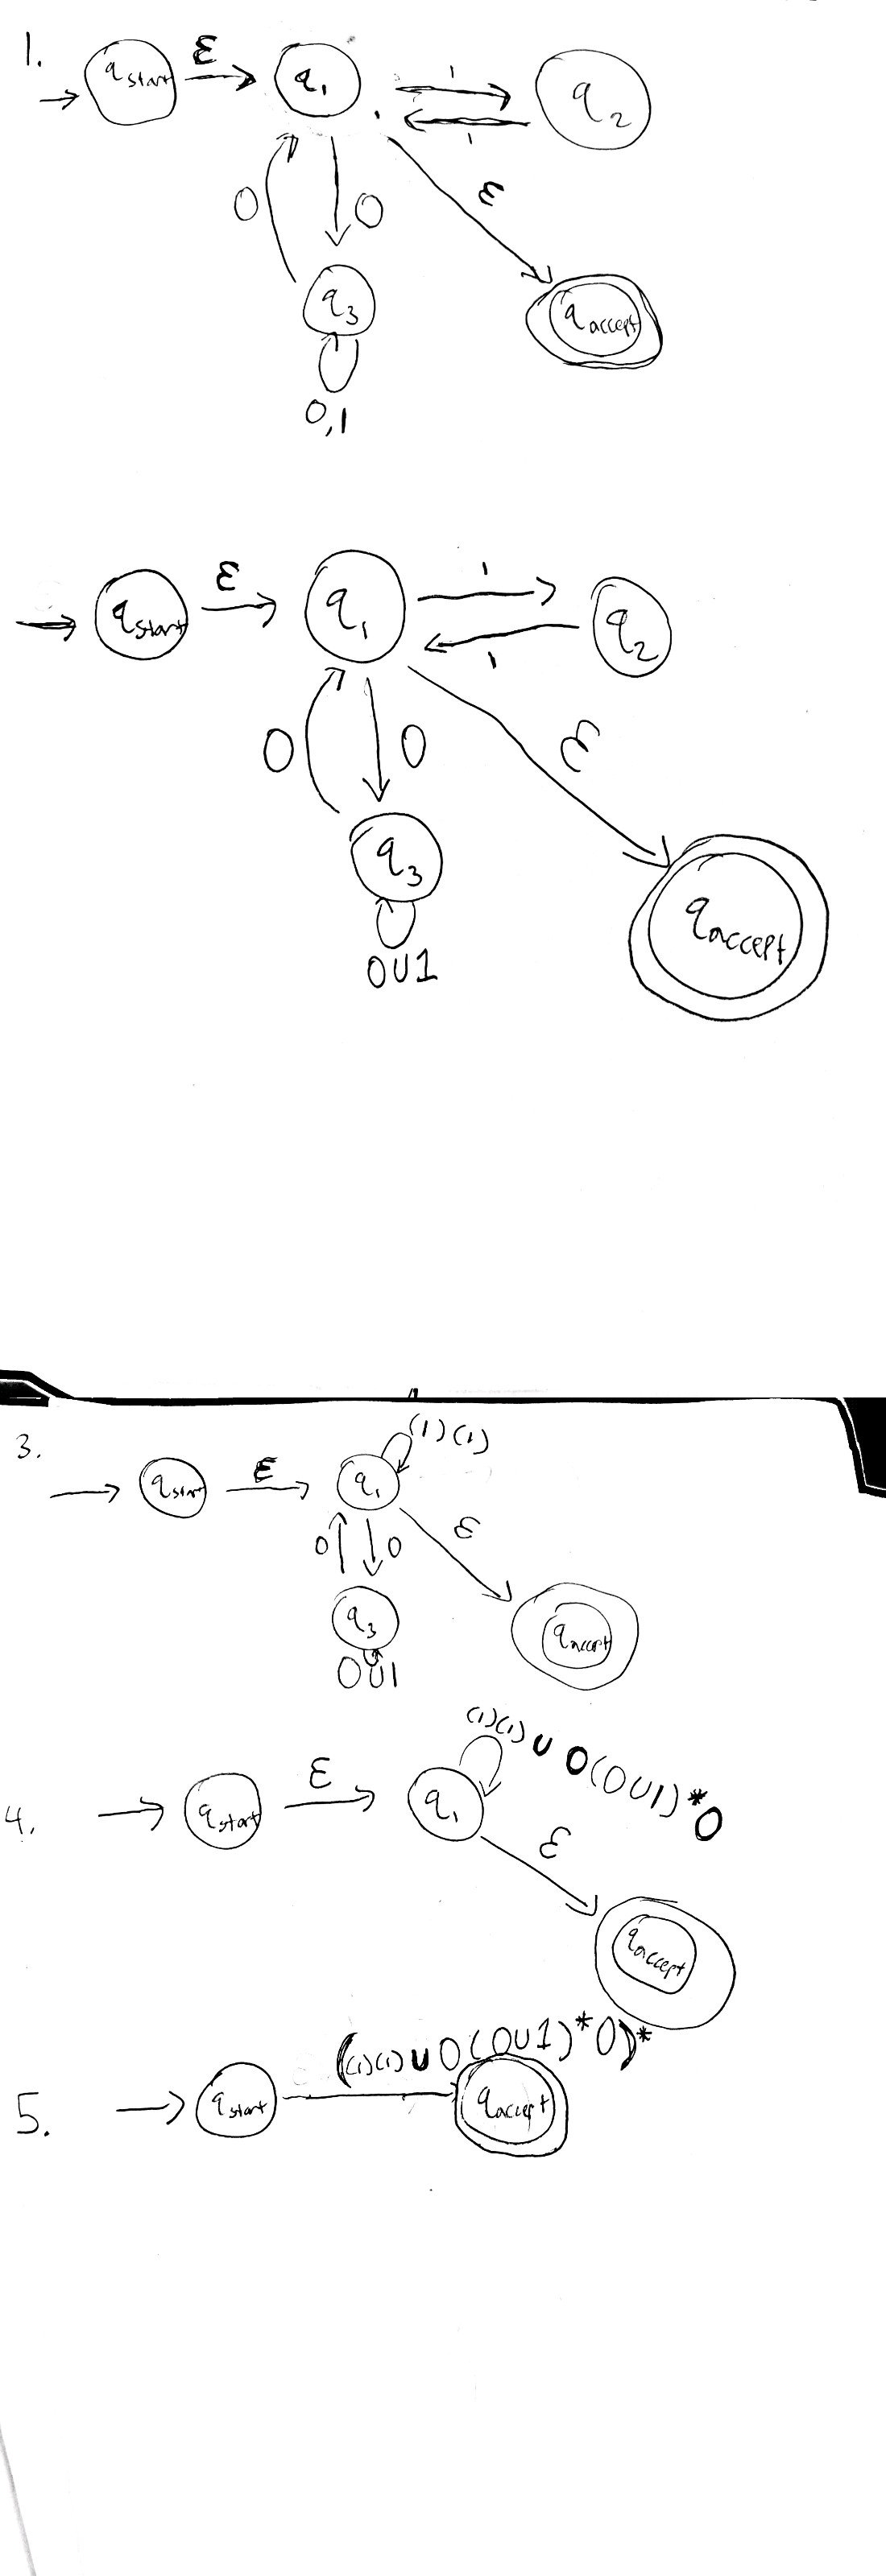 1.
q start ε q1 1 q2
1
0 0 ε
q3 q accept
0,1
q start ε q1 1 q2
1
0 0 ε
q3 q accept
0U1
3.
q start ε q1 (1)(1)
0 0 ε
q3 q accept
0U1
4.
q start ε q1 (1)(1) U 0(0U1)*0
ε
q accept
((1)(1) U 0(0U1)*0)*
5. q start q accept